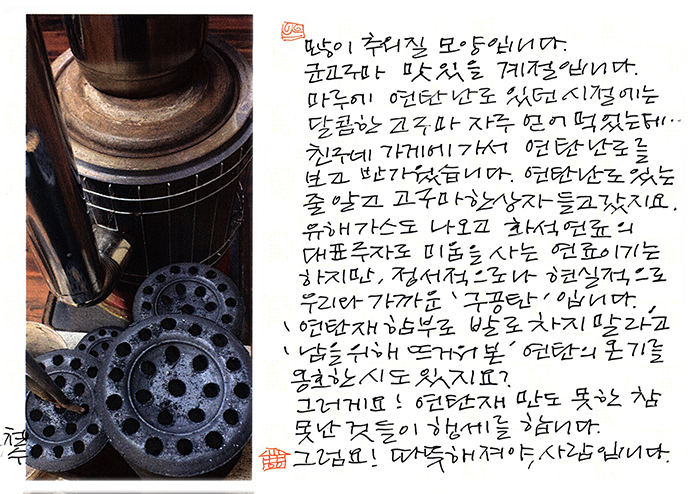 많이 추워질 모양입니다.
군고구마 맛있을 계절입니다.
마루에 연탄난로 있던 시절에는
달콤한 고구마 자주 얻어 먹었는데…
친구네 가게에 가서 연탄난로를
보고 반가웠습니다. 연탄난로 있는
줄 알고 고구마 한상자 들고 갔지요.
유해가스도 나오고 화석연료의
대표주자로 미움을 사는 연료이기는
하지만, 정서적으로나 현실적으로
우리와 가까운 '구공탄' 입니다.
'연탄재 함부로 발로 차지 말라'고
'남을 위해 뜨거워 본' 연탄의 온기를
옹호한 시도 있지요?
그러게요! 연탄재 만도 못한 참
못난 것들이 행세를 합니다.
그럼요! 따뜻해져야, 사람입니다.
철수